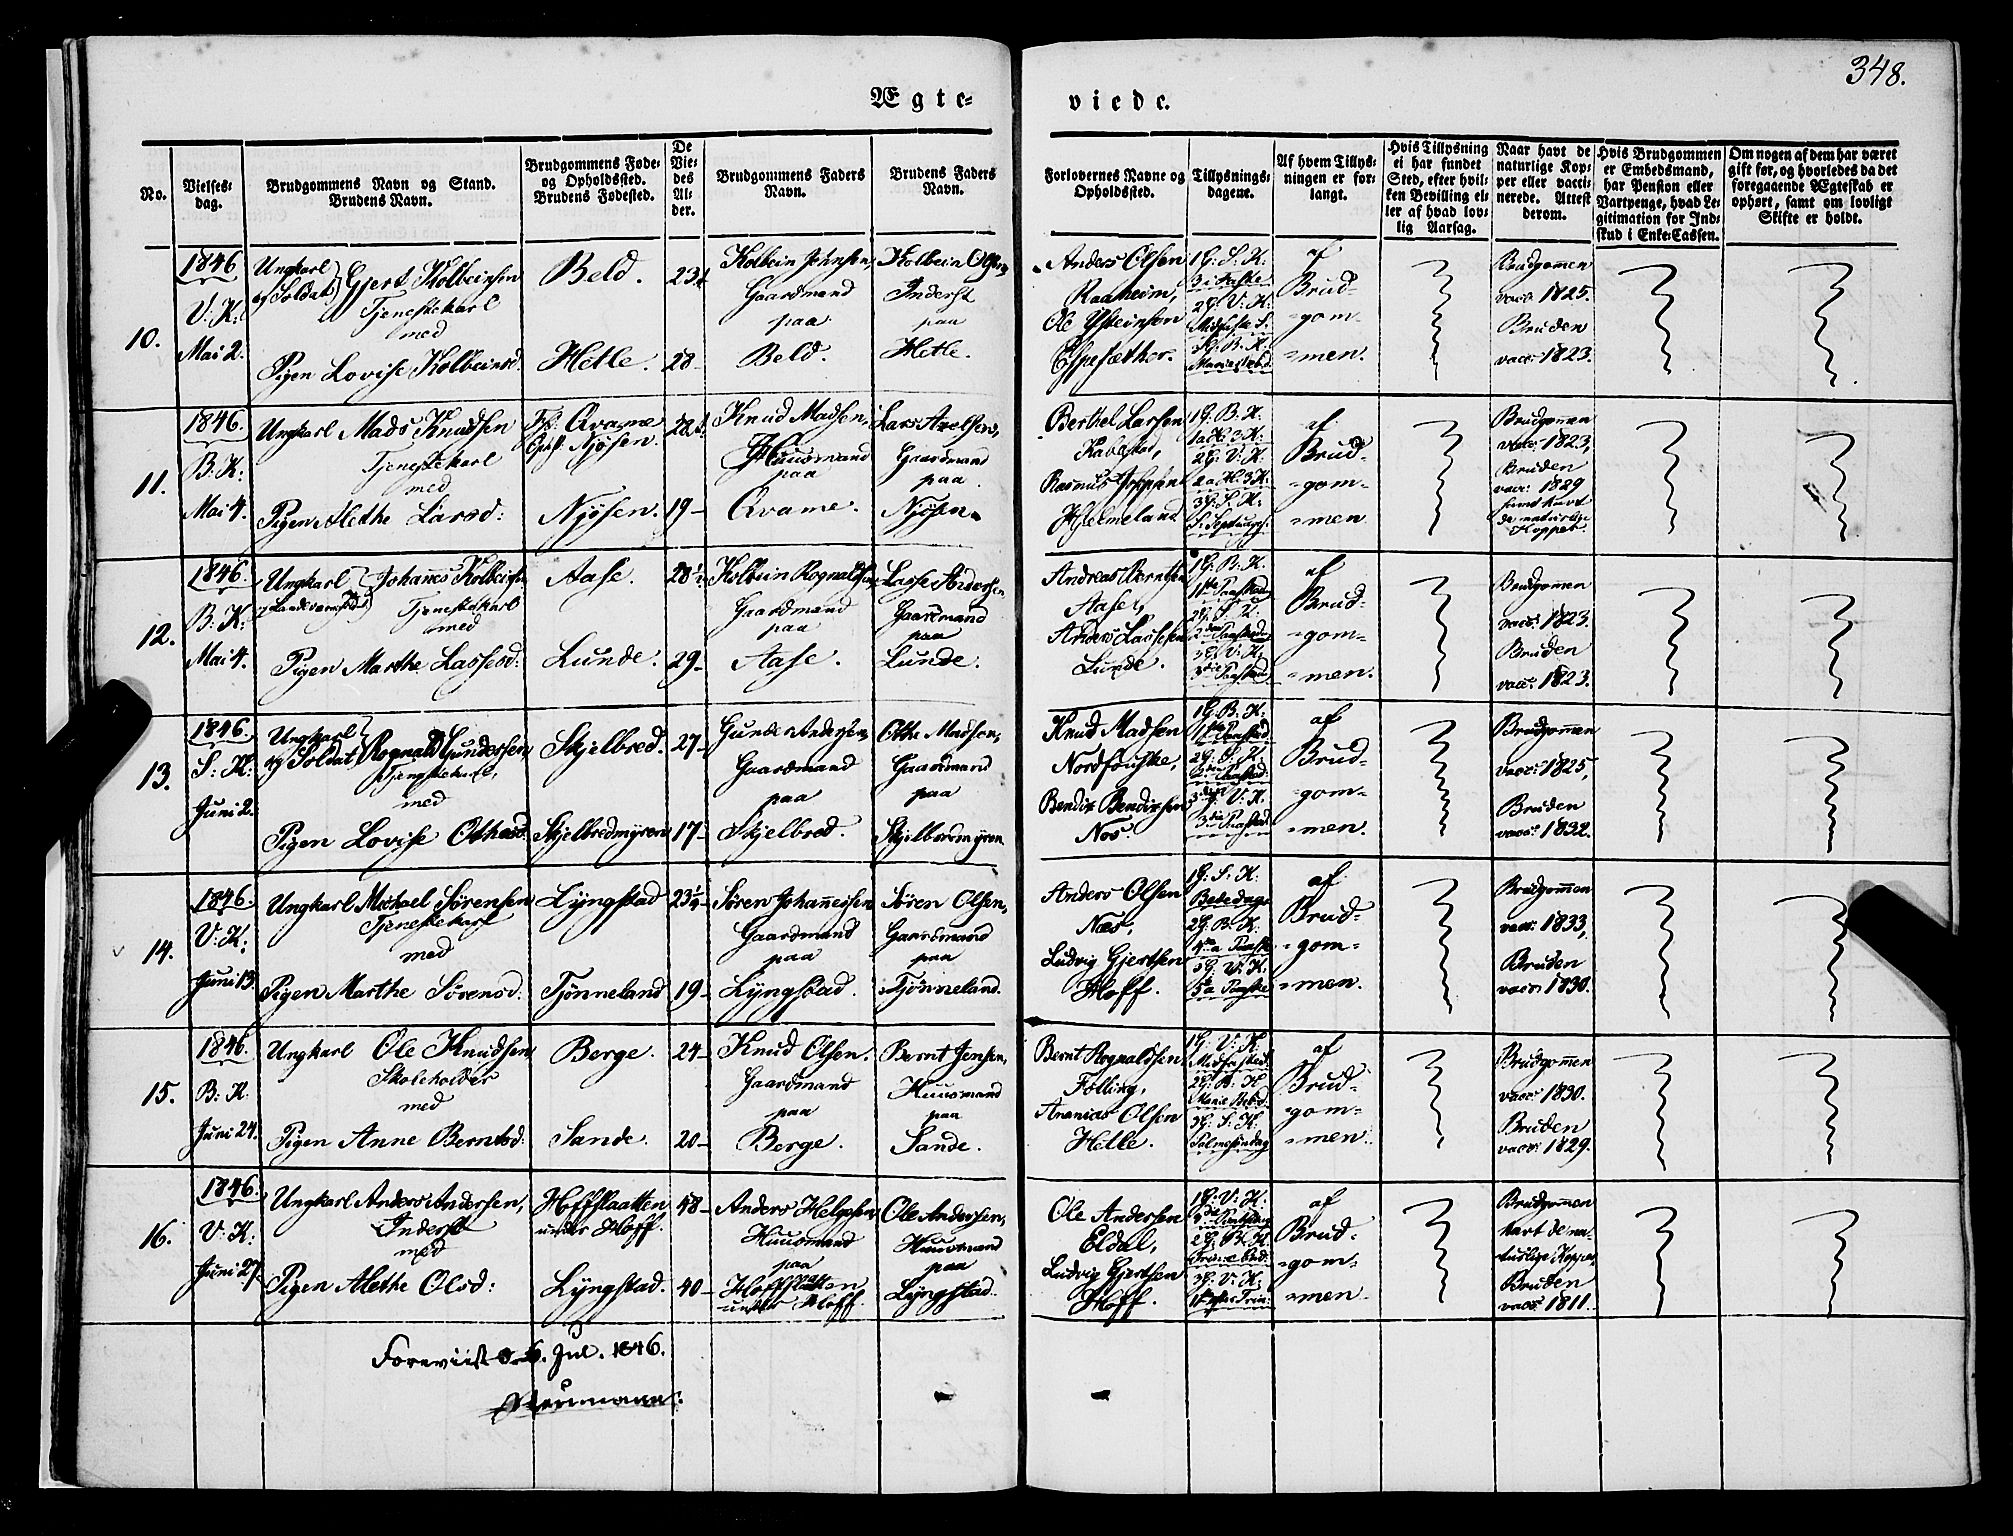 348.
Ægte-
viede.
No.
Vielses-
dag.
Brudgommens Navn og Stand.
Brudens Navn.
Brudgommens Føde-
og Opholdssted.
Brudens Fødested.
De
Vie-
des
Al-
der.
Brudgommens Faders
Navn.
Brudens Faders
Navn.
Forlovernes Navne og
Opholdssted.
Tillysnings-
dagene.
Af hvem Tillys-
ningen er for-
langt.
Hvis Tillysning
ei har fundet
Sted, efter hvil-
ken Bevilling el-
ler af hvad lov-
lig Aarsag.
Naar havt de
naturlige Kop-
per eller vacci-
nerede. Attest
derom.
Hvis Brudgommen
er Embedsmand,
har Pension eller
Vartpenge, hvad Le-
gitimation for Ind-
skud i Enke-Cassen.
Om nogen af dem har været
gift før, og hvorledes da det
foregaaende Ægteskab er
ophørt, samt om lovligt
Skifte er holdt.
10.
1846
V: K:
Mai 2.
Ungkarl
og Soldat Gjert Kolbeinsen
Tjenestekarl
med
Pigen Lovise Kolbeinsd.
Beld.
Hetle.
28
Kolbein Johnsen,
Gaardmand
paa
Beld.
Kolbein Olsen,
Inderst
paa
Hetle.
Anders Olsen
Raaheim,
Ole Ysteinsen
Espesæther.
1 G: S. K:
3 i Faste
2 G: V: K:
Midfaste S.
3 G: B. K:
af
Brud-
gom-
men.
Brudgommen
vacc: 1825.
Bruden
vacc: 1823.
11.
1846.
B. K:
Mai 4.
Ungkarl Mads Knudsen
Tjenestekarl
med
Pigen Alethe Larsd:
Qvame
Njøsen.
Njøsen.
19
Knud Madsen,
Huusmand
paa
Qvame.
Lars Axelsen,
Gaardmand
paa
Njøsen.
Berthel Larsen
Rasmus
Hjelmeland
1 G: B. K:
2 G: V: K:
3 G: S. K:
S: Septuags:
af
Brud-
gom-
men
Brudgommen
vacc: 1823,
Bruden
vacc: 1829
samt havt
de naturlige
Kopper.
12.
1846.
B: K:
Mai 4.
Ungkarl Johannes Kolbeinsen
Tjenestekarl
med
Pigen Marthe Lassesd:
Aase.
Lunde.
28½
29
Kolbein Rognaldsen
Gaardmand
paa
Aase.
Lasse Andersen
Gaardmand
paa
Lunde.
Andreas Berntsen
Aase,
Anders Lassesen
Lunde.
1 G: B. K:
2 G: S. K:
3 G: V: K:
af
Brud-
gom-
men.
Brudgommen
vacc: 1823.
Bruden
vacc: 1823.
13.
1846.
S: K:
Juni 2.
Ungkarl
og Soldat Rognald Gundersen,
Tjenestekarl,
med
Pigen Lovise Othesd.
Skjelbred.
Skjelbredmyren
27
17
Gunder Andersen,
Gaardmand
paa
Skjelbred.
Othe Madsen,
Gaardmand
paa
Skjelbredmyren
Knud Madsen
Nordfouske,
Bendix Bendixsen
Nos.
1 G: B. K:
2 G: S. K:
3 G: V: K:
af
Brud-
gom-
men.
Brudgommen
vacc: 1825,
Bruden
vacc: 1832.
14.
1846.
V: K:
Juni 13.
Ungkarl Michael Sørensen
Tjenestekarl
med
Pigen Marthe Sørensd:
Lyngstad
Tjønneland
19
Søren Johannessen
Gaardmand
paa
Lyngstad.
Søren Olsen,
Gaardmand
paa
Tjønneland.
Anders Olsen
Næs,
Ludvig Gjertsen
Hoff.
1 G: S: K:
Bededag
2 G: B: K:
3 G: V: K:
af
Brud-
gom-
men.
Brudgommen
vacc: 1833,
Bruden
vacc: 1830.
15.
1846.
B: K:
Juni 24.
Ungkarl Ole Knudsen
Skoleholder
med
Pigen Anne Berntsd:
Berge.
Sande.
24
20
Knud Olsen.
Gaardmand
paa
Berge.
Bernt Jensen,
Huusmand
paa
Sande.
Bernt Rognaldsen
Følling,
Ananias Olsen
Helle.
1 G: V: K:
2 G: B: K:
3 G: S: K:
Palmesøndag
af
Brud-
gom-
men.
Brudgommen
vacc: 1830.
Bruden
vacc: 1829.
16.
1846.
V: K:
Juni 27.
Ungkarl Anders Andersen,
Inderst
med
Pigen Alethe Olsd:
Hoffslaatten
under Hoff.
Lyngstad.
48
40
Anders Helgesen
Huusmand
paa
Hoffslaatten
under Hoff.
Ole Andersen,
Huusmand
paa
Lyngstad.
Ole Andersen
Eldal,
Ludvig Gjertsen
Hoff.
1 G: V: K:
2 G: B. K:
3 G: V: K:
af
Brud-
gom-
men.
Brudgommen
havt de na-
turlige Kopper
Bruden
vacc: 1811.
Foreviist d. 6. Jul. 1846.
Neumann.